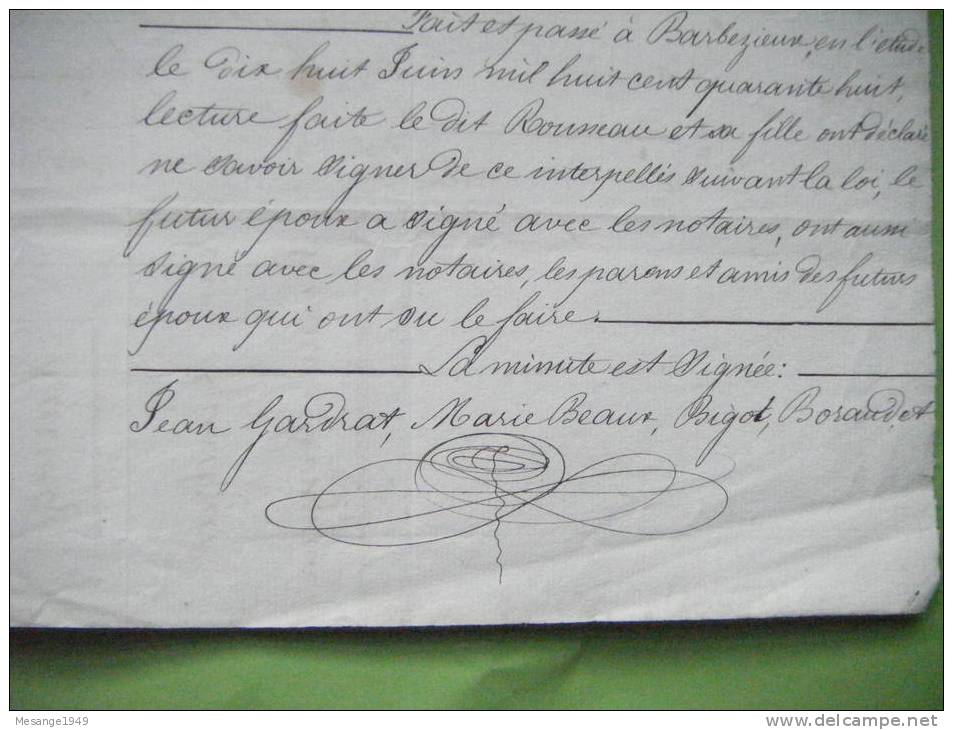 Fait et passé à Barbezieux, en l'étude
le dix huit Juin mil huit cent quarante huit,
lecture faite le dit Rousseau et sa fille ont déclaré
ne savoir signer de ce interpellés suivant la loi, le
futur époux a signé avec les notaires, ont aussi
signé avec les notaires, les parens et amis des futurs
époux qui ont su le faire.
La minute est signée:
Jean Gardrat, Marie Beaux, Bigot, Boraud, et
Mesange1949
www.delcampe.net